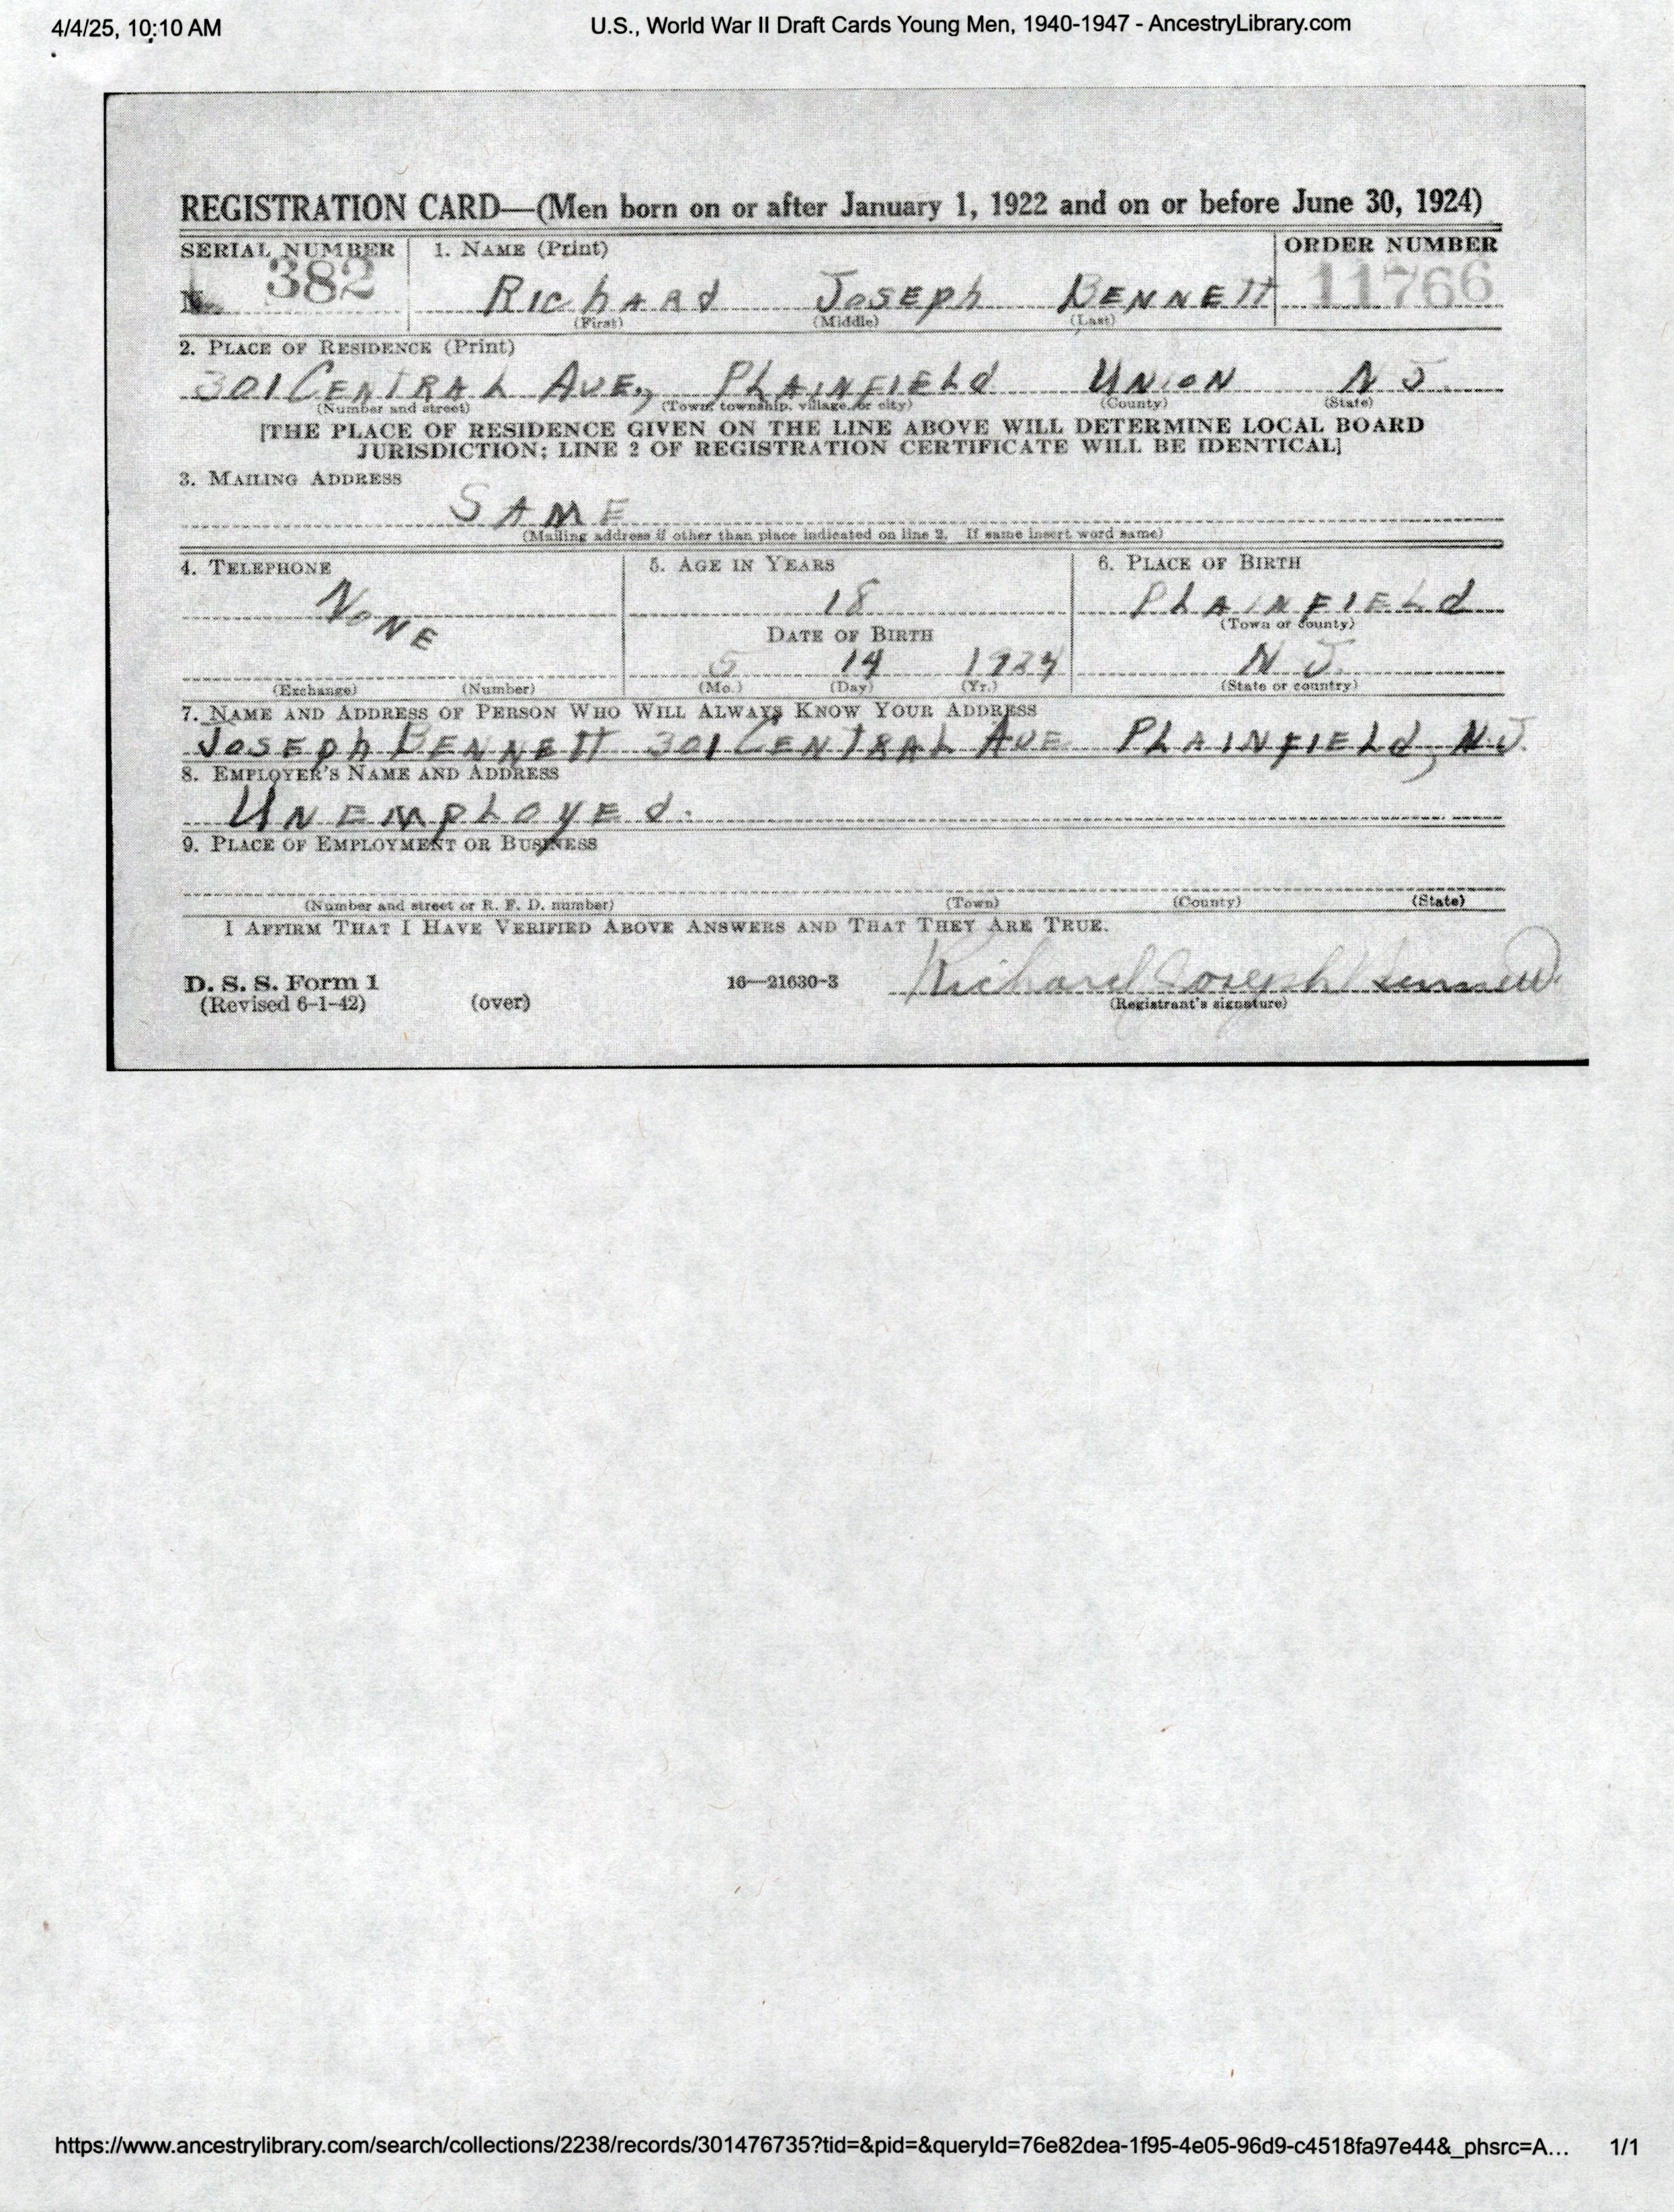 4/4/25, 10:10 AM U.S., World War II Draft Cards Young Men, 1940-1947 - AncestryLibrary.com
REGISTRATION CARD—(Men born on or after January 1, 1922 and on or before June 30, 1924)
SERIAL NUMBER 1. NAME (Print) ORDER NUMBER
N. 382 RichARd JosEph BENNETT 11766
(First) (Middle) (Last)
2. PLACE OF RESIDENCE (Print)
301 CENTRAL AVE., PLAINFIELd UNION N J.
(Number and street) (Town, township, village, or city) (County) (State)
[THE PLACE OF RESIDENCE GIVEN ON THE LINE ABOVE WILL DETERMINE LOCAL BOARD
JURISDICTION; LINE 2 OF REGISTRATION CERTIFICATE WILL BE IDENTICAL]
3. MAILING ADDRESS
SAME
(Mailing address if other than place indicated on line 2. If same insert word same)
4. TELEPHONE 5. AGE IN YEARS 6. PLACE OF BIRTH
NONE 18 PLAINFIELd
(Town or county)
DATE OF BIRTH
5 14 1924 N J.
(Exchange) (Number) (Mo.) (Day) (Yr.) (State or country)
7. NAME AND ADDRESS OF PERSON WHO WILL ALWAYS KNOW YOUR ADDRESS
JosEph BENNETT 301 CENTRAL AVE PLAINFIELd, N.J.
8. EMPLOYER'S NAME AND ADDRESS
UNEMPLOYEd.
9. PLACE OF EMPLOYMENT OR BUSINESS
(Number and street or R. F. D. number) (Town) (County) (State)
I AFFIRM THAT I HAVE VERIFIED ABOVE ANSWERS AND THAT THEY ARE TRUE.
D. S. S. Form 1 16—21630-3 Richard Joseph Bennett
(Revised 6-1-42) (over) (Registrant's signature)
https://www.ancestrylibrary.com/search/collections/2238/records/301476735?tid=&pid=&queryId=76e82dea-1f95-4e05-96d9-c4518fa97e44&_phsrc=A... 1/1